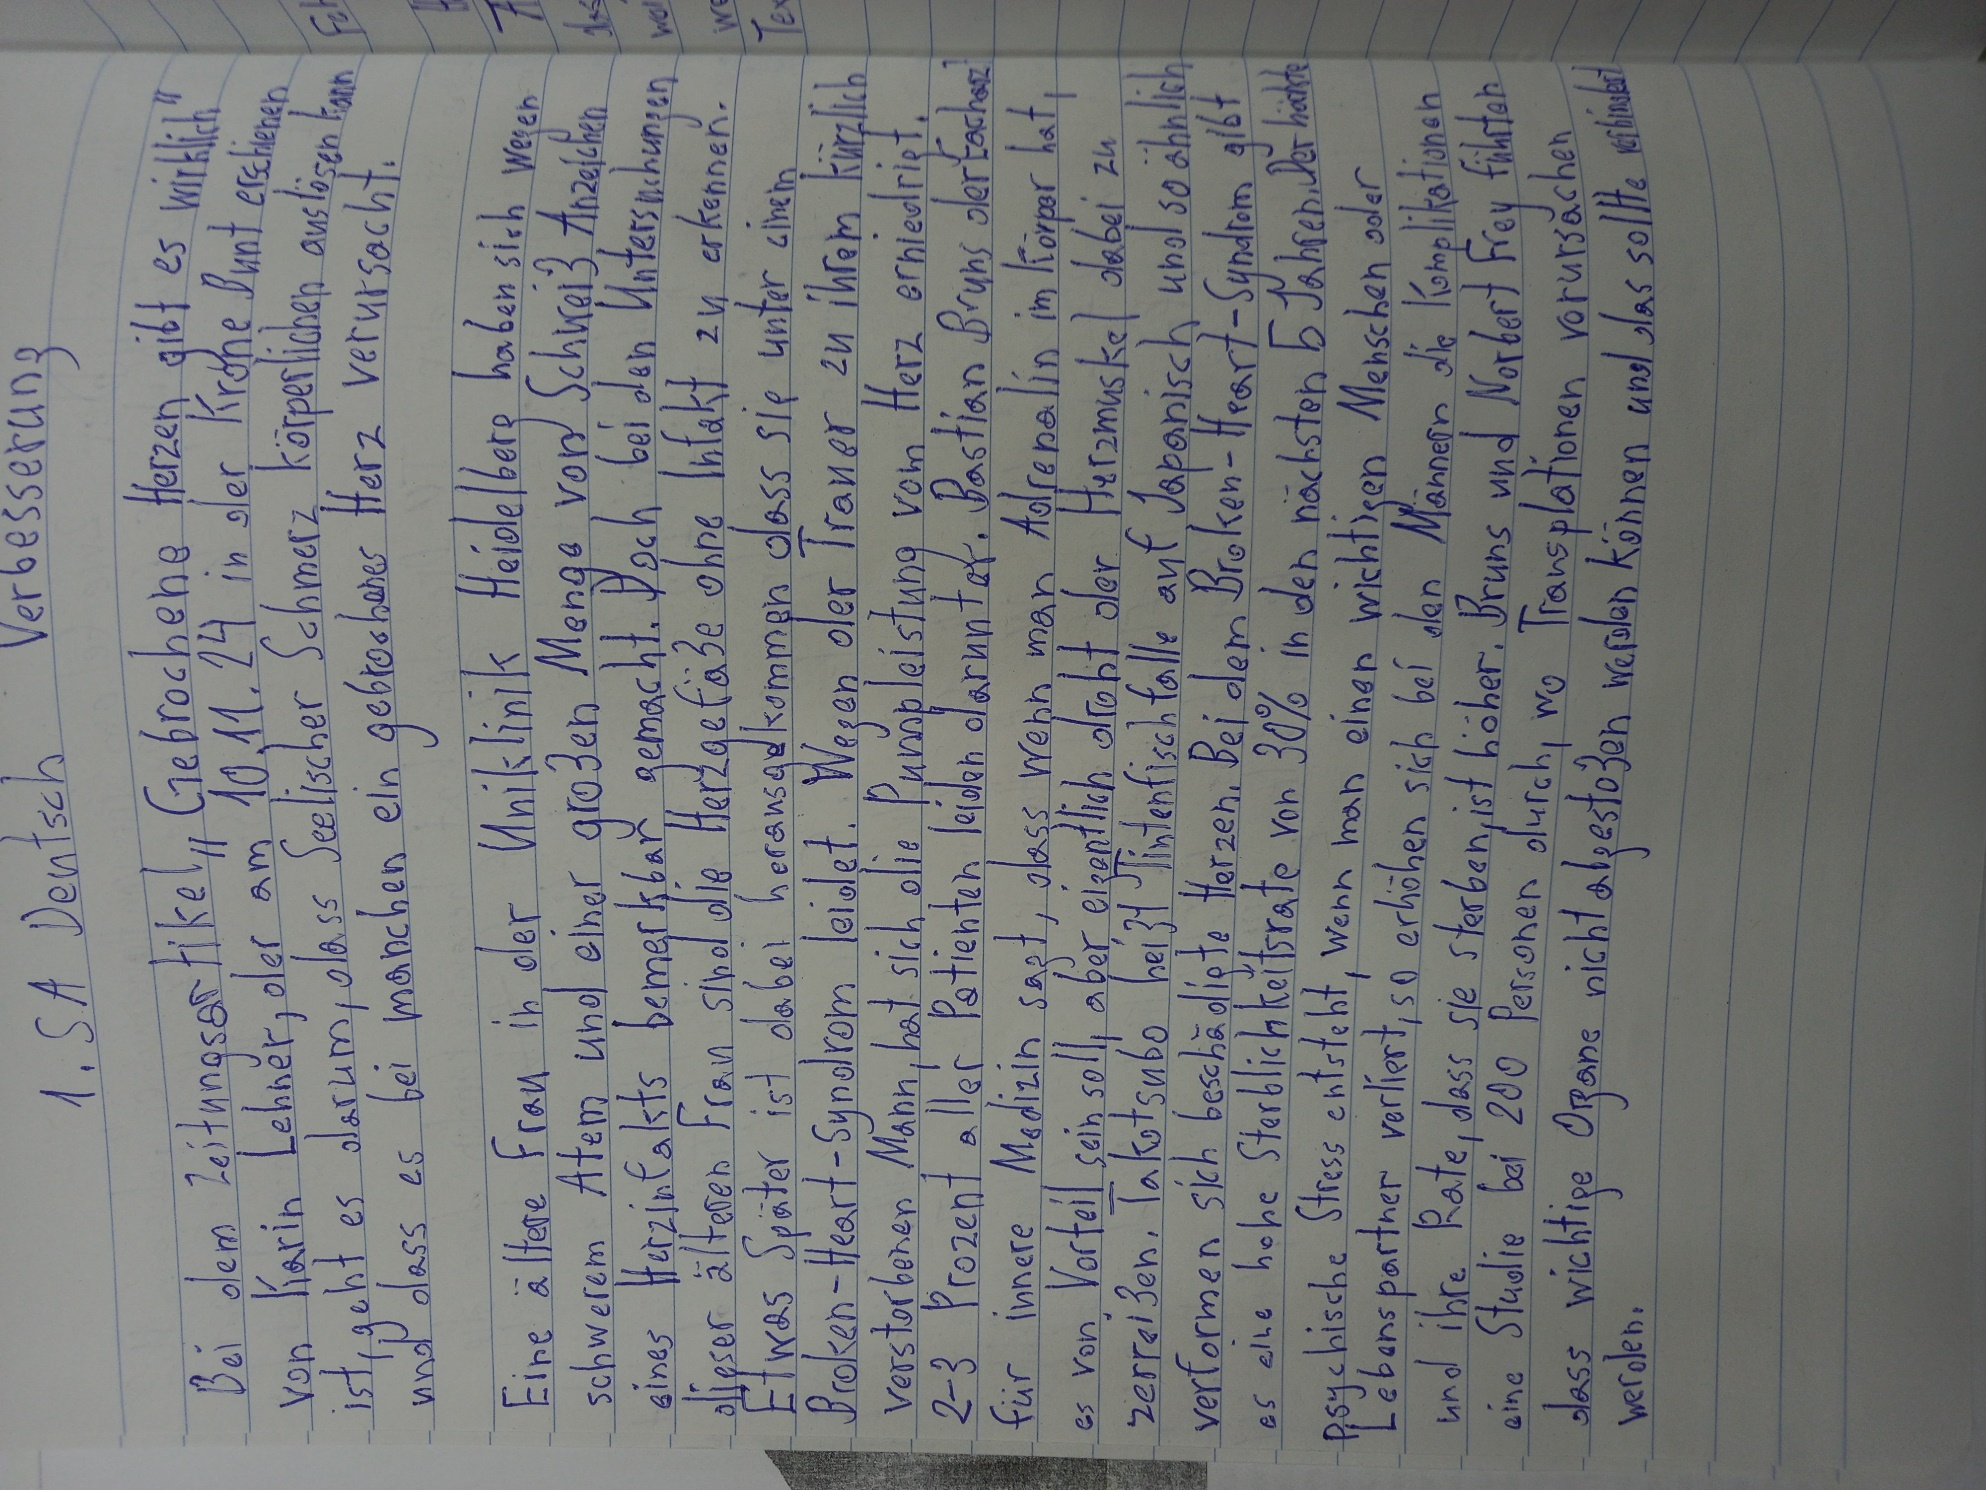 1. SA Deutsch Verbesserung
Bei dem Zeitungsartikel „Gebrochene Herzen gibt es wirklich"
von Karin Lehner, der am 10.11.24 in der Krone Bunt erschienen
ist, geht es darum, dass Seelischer Schmerz körperlichen auslösen kann
und dass es bei manchen ein gebrochenes Herz verursacht.
Eine ältere Frau in der Uniklinik Heidelberg haben sich wegen
schwerem Atem und einer großen Menge von Schweiß Anzeichen
eines Herzinfakts bemerkbar gemacht. Doch bei den Untersuchungen
dieser älteren Frau sind die Herzgefäße ohne Intakt zu erkennen.
Etwas Später ist dabei herausgekommen dass sie unter einem
Broken-Heart-Syndrom leidet. Wegen der Trauer zu ihrem kürzlich
verstorbenen Mann, hat sich die Pumpleistung vom Herz erniedrigt.
2-3 Prozent aller Patienten leiden darunter. Bastian Bruns der Facharzt
für innere Medizin sagt, dass wenn man Adrenalin im Körper hat,
es von Vorteil sein soll, aber eigentlich droht der Herzmuskel dabei zu
zerreißen. Takotsubo heißt Tintenfischfalle auf Japanisch und so ähnlich
verformen sich beschädigte Herzen. Bei dem Broken-Heart-Syndrom gibt
es eine hohe Sterblichkeitsrate von 30% in den nächsten 5 Jahren. Der härteste
Psychische Stress entsteht, wenn man einen wichtigen Menschen oder
Lebenspartner verliert, so erhöhen sich bei den Männern die Komplikationen
und ihre Rate, dass sie sterben, ist höher. Bruns und Norbert Frey führten
eine Studie bei 200 Personen durch, wo Transplationen vorursachen
dass wichtige Organe nicht abgestoßen werden können und das sollte verhindert
werden.